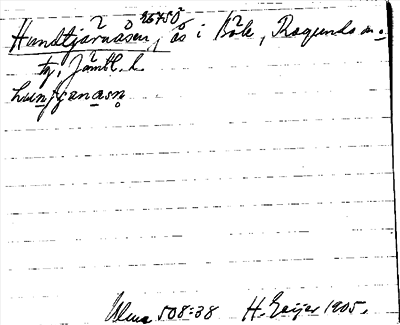 26750
Hundtjärnåsen, ås i Böle, Ragunda sn o.
tg, Jämtl. l.
hunʃænasn̥
Ulma 508:38 H. Geijer 1905.